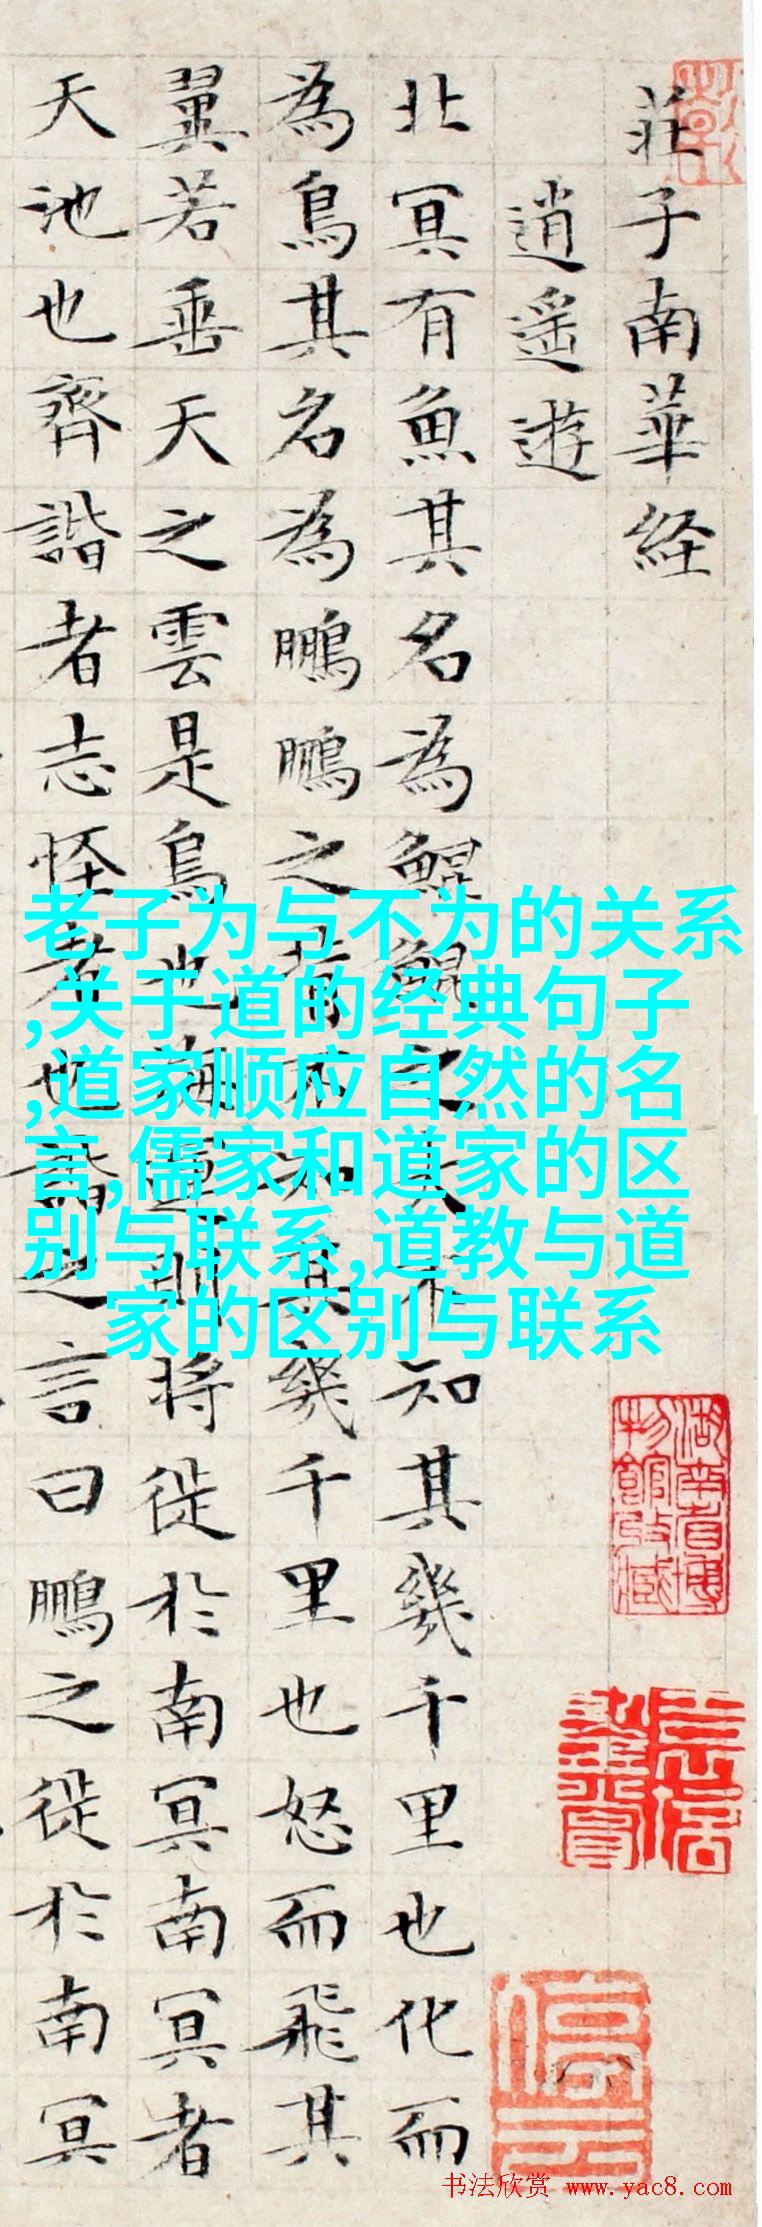 莊子南華経
逍遥遊
北冥有魚其名為鯤鯤之大不知其幾千里也化而
為鳥其名為鵬鵬之背不知其幾千里也怒而飛其
翼若垂天之雲是鳥也海運則将徙於南冥南冥者
天池也齊諧者志怪者也諧之言曰鵬之徙於南冥
老子为与不为的关系
,关于道的经典句子
,道家顺应自然的名
言,儒家和道家的区
别与联系,道教与道
家的区别与联系
湖南省博
物館收藏
停云
书法欣赏 www.yac8.com